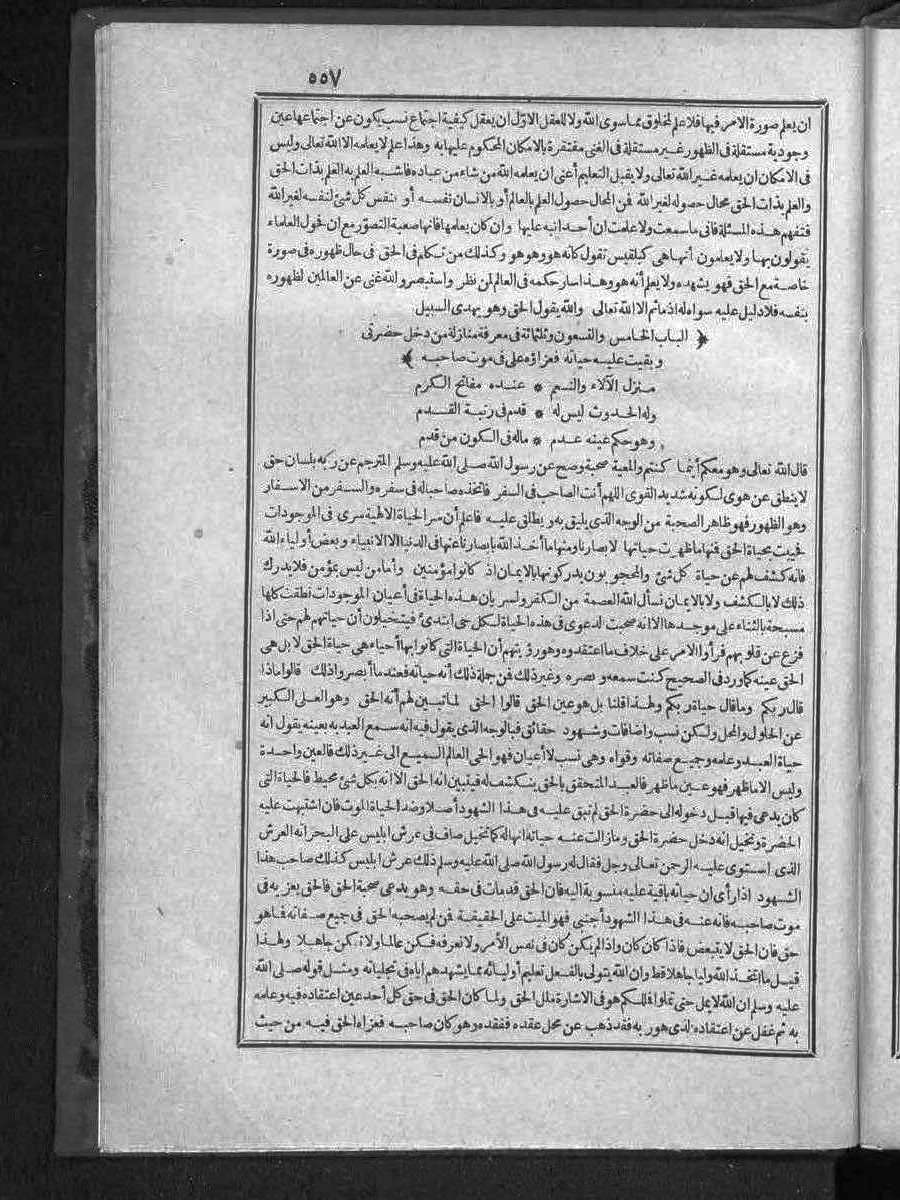 ٥٥٧
ان يعلم صورة الامر فيها فلا علم لمخلوق مما سوى الله ولا للعقل الاوّل ان يعقل كيفية اجتماع نسب يكون عن اجتماعها عين
وجودية مستقلة فى الظهور غير مستقلة فى الغنى مفتقرة بالامكان المحكوم عليها به وهذا علم لا يعلمه الا الله تعالى وليس
فى الامكان ان يعلمه غير الله تعالى ولا يقبل التعليم أعنى ان يعلمه الله من شاء من عباده فاشبه العلم به العلم بذات الحق
والعلم بذات الحق محال حصوله لغير الله فمن المحال حصول العلم بالعالم أو بالانسان نفسه أو بنفس كل شئ لنفسه لغير الله
فتفهم هذه المسئلة فانى ما سمعت ولا علمت ان أحدا نبه عليها وان كان يعلمها فانها صعبة التصوّر مع ان فحول العلماء
يقولون بها ولا يعلمون أنها هى كبلقيس تقول كأنه هو وهو هو وكذلك من تكلم فى الحق فى حال ظهوره فى صورة
خاصة مع الحق فهو يشهده ولا يعلم أنه هو وهذا سار حكمه فى العالم لمن نظر واستبصر والله غنى عن العالمين لظهوره
بنفسه فلا دليل عليه سواه اذ ما ثم الا الله تعالى والله يقول الحق وهو يهدى السبيل
﴿ الباب الخامس والتسعون وثلثمائة فى معرفة منازلة من دخل حضرتى
وبقيت عليه حياته فعزاؤه علىّ فى موت صاحبه ﴾
منزل الآلاء والنعم * عنده مفاتح الكرم
وله الحدوث ليس له * قدم فى رتبة القدم
وهو حكم عينه عدم * ماله فى الكون من قدم
قال الله تعالى وهو معكم أينما كنتم والمعية صحبة وصح عن رسول الله صلى الله عليه وسلم المترجم عن ربه بلسان حق
لا ينطق عن هوى لكونه شديد القوى اللهم أنت الصاحب فى السفر فاتخذه صاحبا له فى سفره والسفر من الاسفار
وهو الظهور فهو ظاهر الصحبة من الوجه الذى يليق به ويطلق عليه فاعلم أن سر الحياة الالهية سرى فى الموجودات
فحييت بحياة الحق فمنها ما ظهرت حياتها لابصارنا ومنها ما أخذ الله بابصارنا عنها فى الدنيا الا الانبياء وبعض أولياء الله
فانه كشف لهم عن حياة كل شئ والمحجوبون يدركونها بالايمان اذ كانوا مؤمنين وأما من ليس بمؤمن فلا يدرك
ذلك لا بالكشف ولا بالايمان نسأل الله العصمة من الكفر ولسريان هذه الحياة فى أعيان الموجودات نطقت كلها
مسبحة بالثناء على موجدها الا انه صحبت الدعوى فى هذه الحياة لكل حى ابتدئ فيتخيلون أن حياتهم لهم حتى اذا
فزع عن قلوبهم فرأوا الامر على خلاف ما اعتقدوه وهو رؤيتهم أن الحياة التى كانوا بها أحياء هى حياة الحق لا بل هى
الحق عينه كما ورد فى الصحيح كنت سمعه وبصره وغير ذلك فمن جملة ذلك أنه حياته فعند ما أبصروا ذلك قالوا ماذا
قال ربكم وما قال حياة ربكم ولهذا قلنا بل هو عين الحق قالوا الحق لما تبين لهم أنه الحق وهو العلى الكبير
عن الحلول والمحل ولكن نسب واضافات وشهود حقائق فبالوجه الذى يقول فيه انه سمع العبد به بعينه يقول انه
حياة العبد وعلمه وجميع صفاته وقواه وهى نسب لا أعيان فهو الحى العالم السميع الى غير ذلك فالعين واحدة
وليس الا ما ظهر فهو عين ما ظهر فالعبد المتحقق بالحق ينكشف له فيتبين انه الحق الا انه بكل شئ محيط فالحياة التى
كان يدعى فيها قبل دخوله الى حضرة الحق لم تبق عليه فى هذا الشهود أصلا وضد الحياة الموت فان اشتبهت عليه
الحضرة وتخيل انه دخل حضرة الحق وما زالت عنه حياته انها له كما تخيل صاف فى عرش ابليس على البحر انه العرش
الذى استوى عليه الرحمن تعالى وجل فقال له رسول الله صلى الله عليه وسلم ذلك عرش ابليس كذلك صاحب هذا
الشهود اذا رأى ان حياته باقية عليه منسوبة اليه فان الحق قد مات فى حقه وهو يدعى صحبة الحق فالحق يعزيه فى
موت صاحبه فانه عنه فى هذا الشهود أجنبى فهو الميت على الحقيقة فمن لم يصحبه الحق فى جميع صفاته فما هو
حق فان الحق لا يتبعض فاذا كان كان واذا لم يكن كان فى نفس الأمر ولا نعرفه فكن عالما ولا تكن جاهلا ولهذا
قيل ما اتخذ الله وليا جاهلا قط وان الله يتولى بالفعل تعليم أوليائه بما يشهدهم اياه فى تجلياته ومثل قوله صلى الله
عليه وسلم ان الله لا يمل حتى تملوا فللكم هو فى الاشارة ملل الحق ولما كان الحق فى حق كل أحد عين اعتقاده فيه وعلمه
به ثم غفل عن اعتقاده الذى هو ربه فقد ذهب عن محل عقده ففقده وهو كان صاحبه فعزاه الحق فيه من حيث